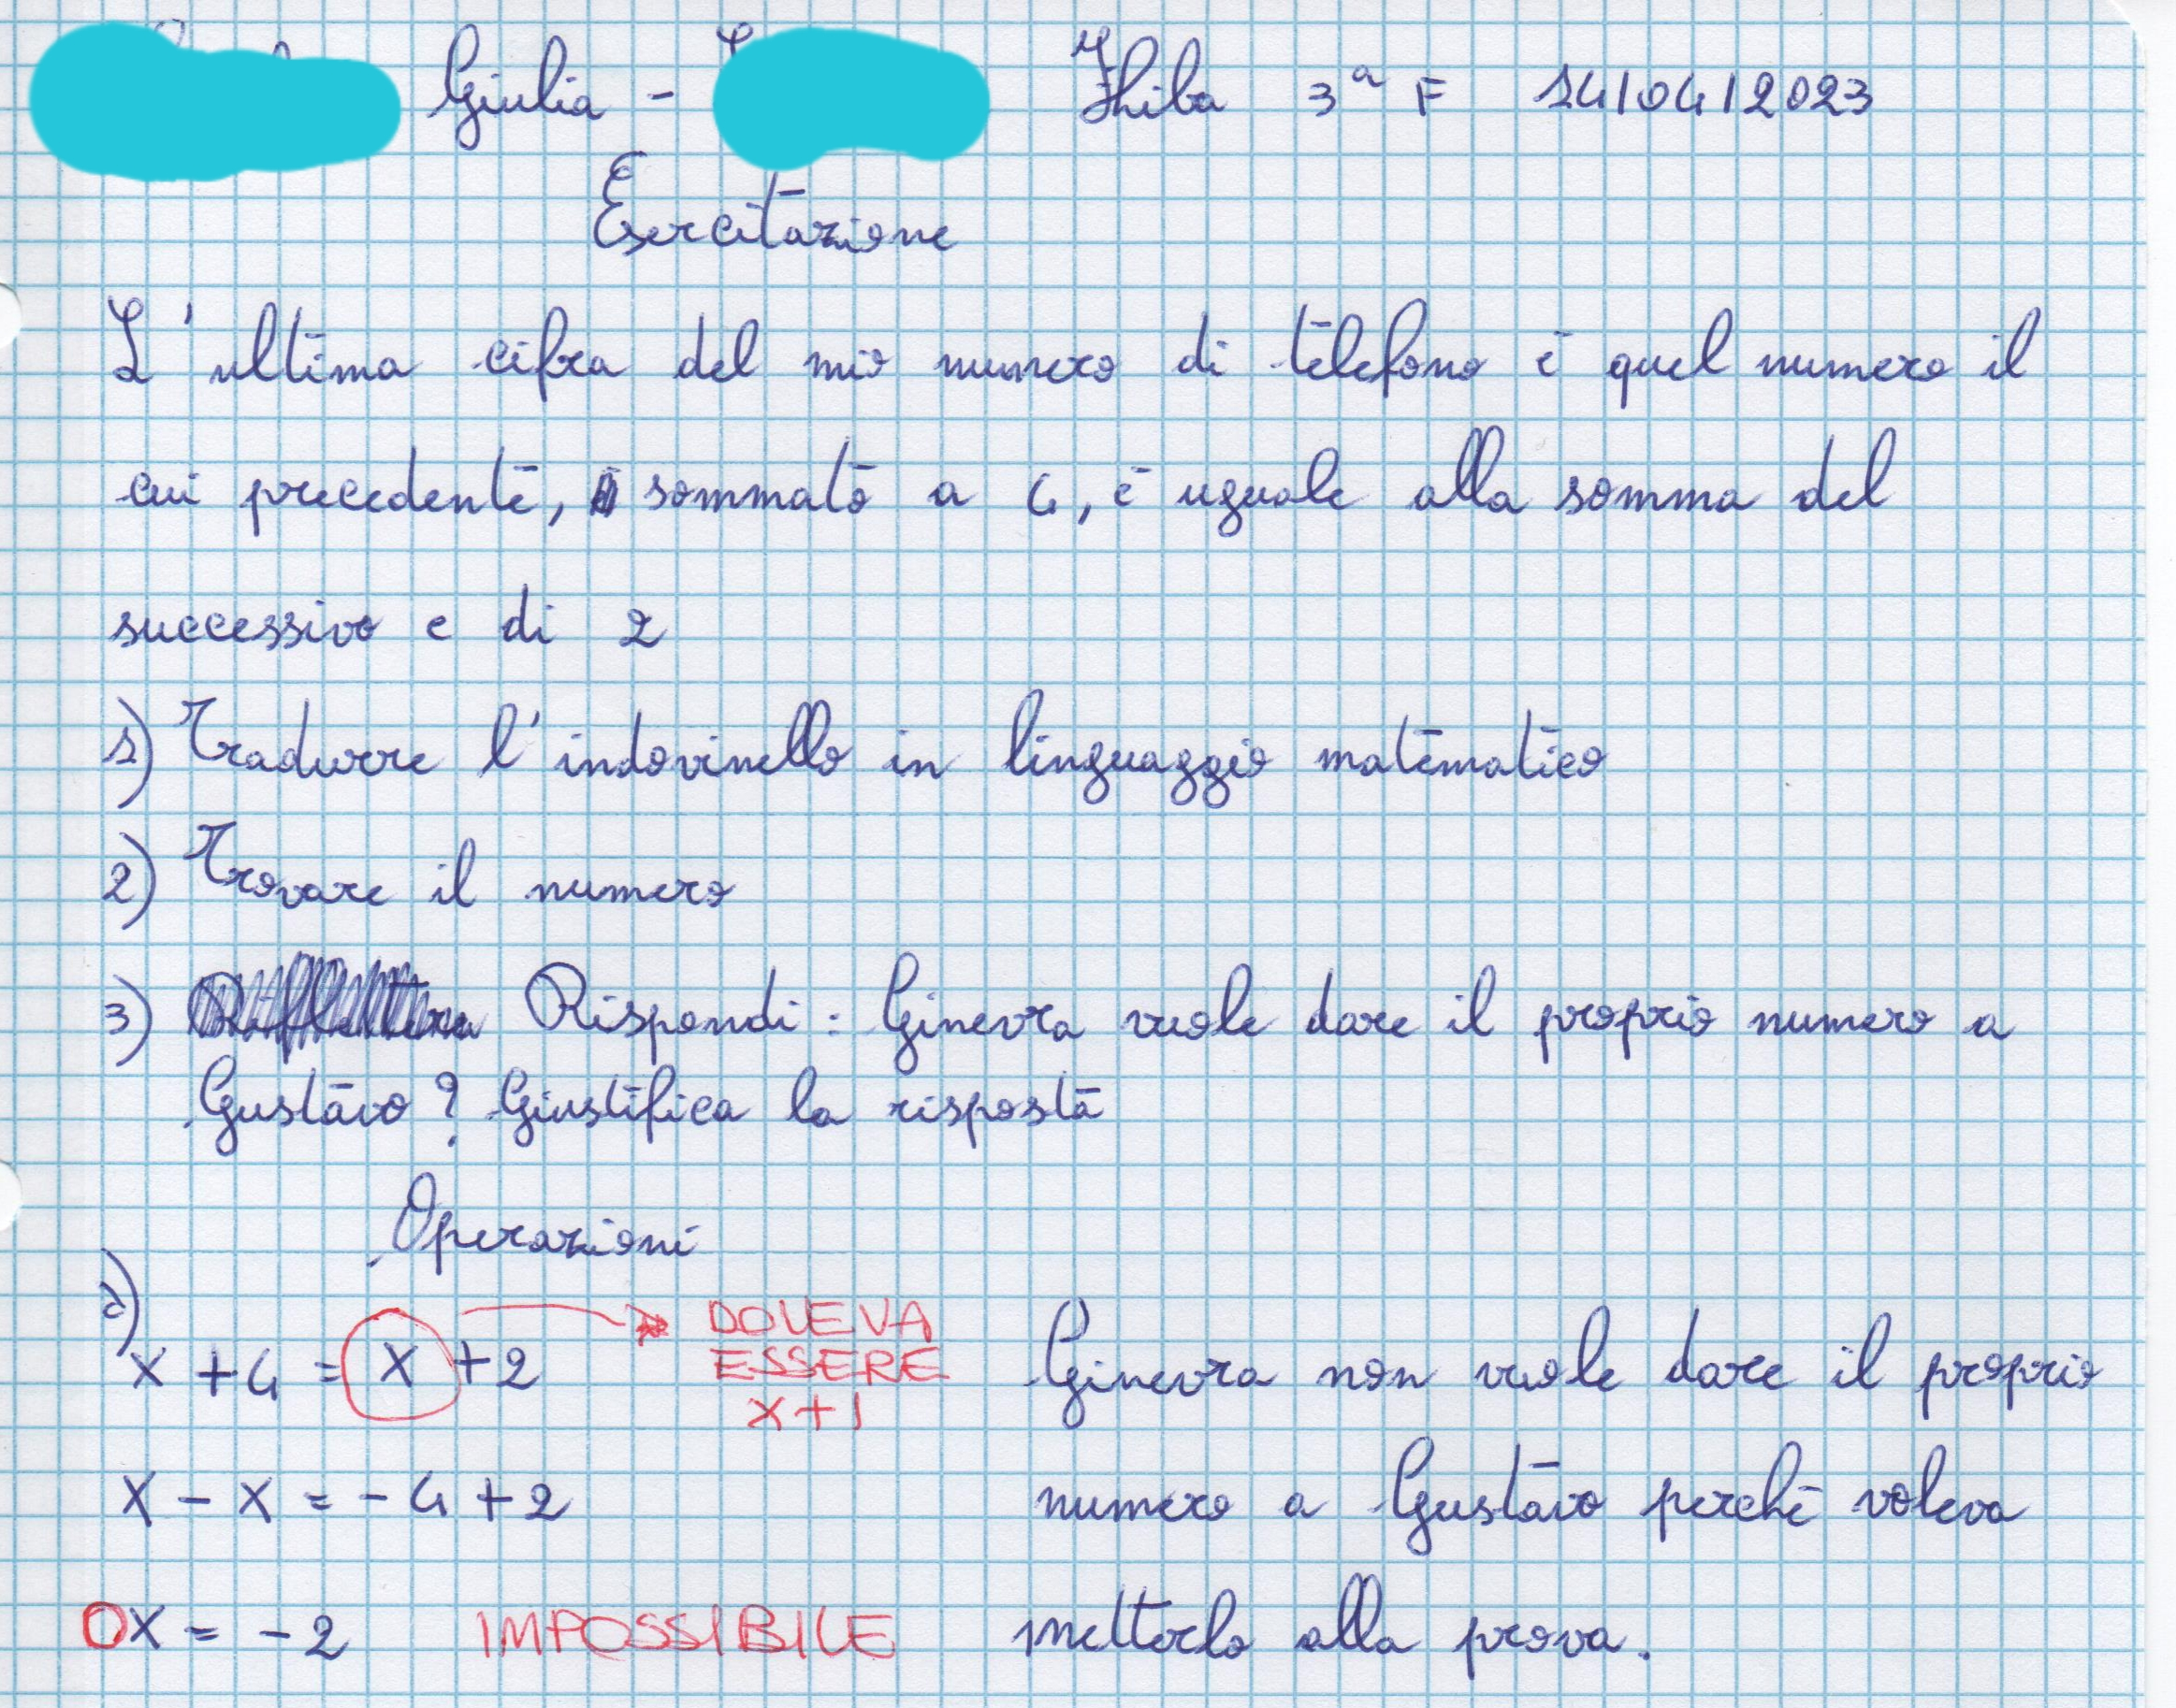 Giulia - Hiba 3ª F 14/04/2023
Esercitazione
L'ultima cifra del mio numero di telefono è quel numero il
cui precedente, sommato a 4, è uguale alla somma del
successivo e di 2
1) Tradurre l'indovinello in linguaggio matematico
2) Trovare il numero
3) Rispondi: Ginevra vuole dare il proprio numero a
Gustavo? Giustifica la risposta
Operazioni
x + 4 = x + 2 DOVEVA ESSERE x+1
x - x = - 4 + 2
0x = - 2 IMPOSSIBILE
Ginevra non vuole dare il proprio
numero a Gustavo perchè voleva
metterlo alla prova.